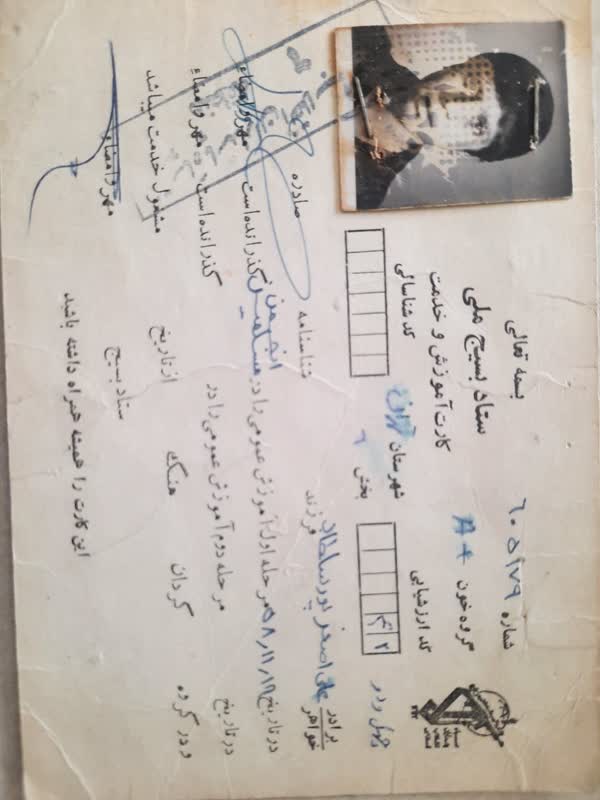 بسمه تعالی
ستاد بسیج ملی
کارت آموزش و خدمت
شماره ۶۰۵۱۷۹
گروه خون A+
کد شناسائی
کد ارزشیابی
شهرستان تهران
بخش ۶
برادر
خواهر
علی اصغر پورسلطان
فرزند
شناسنامه
صادره
در تاریخ ۵۸/۱۱/۱۶ مرحله اول آموزش عمومی را در انجمن گذرانده است مهر و امضاء
در تاریخ مرحله دوم آموزش عمومی را در گذرانده است مهر و امضاء
و در گروه گردان هنگ از تاریخ مشغول خدمت میباشد
ستاد بسیج مهر و امضاء
این کارت را همیشه همراه داشته باشید